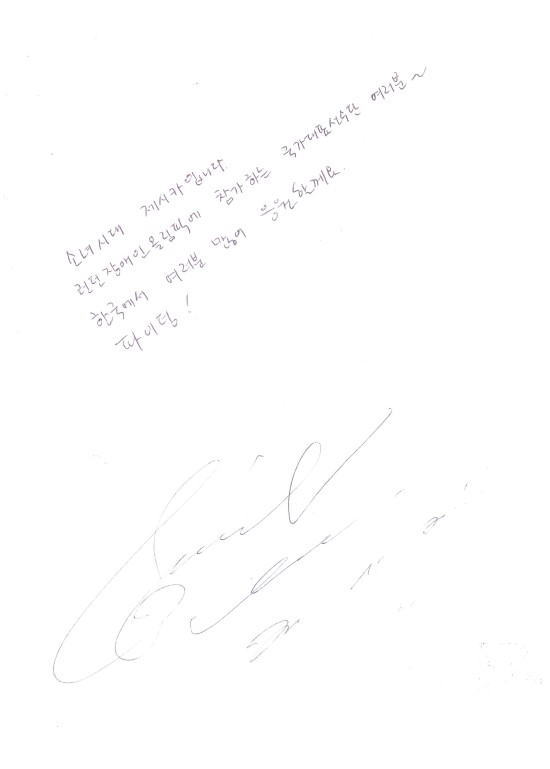 소녀시대 제시카입니다.
런던장애인올림픽에 참가하는 국가대표선수단 여러분~
한국에서 여러분 많이 응원할께요.
파이팅!